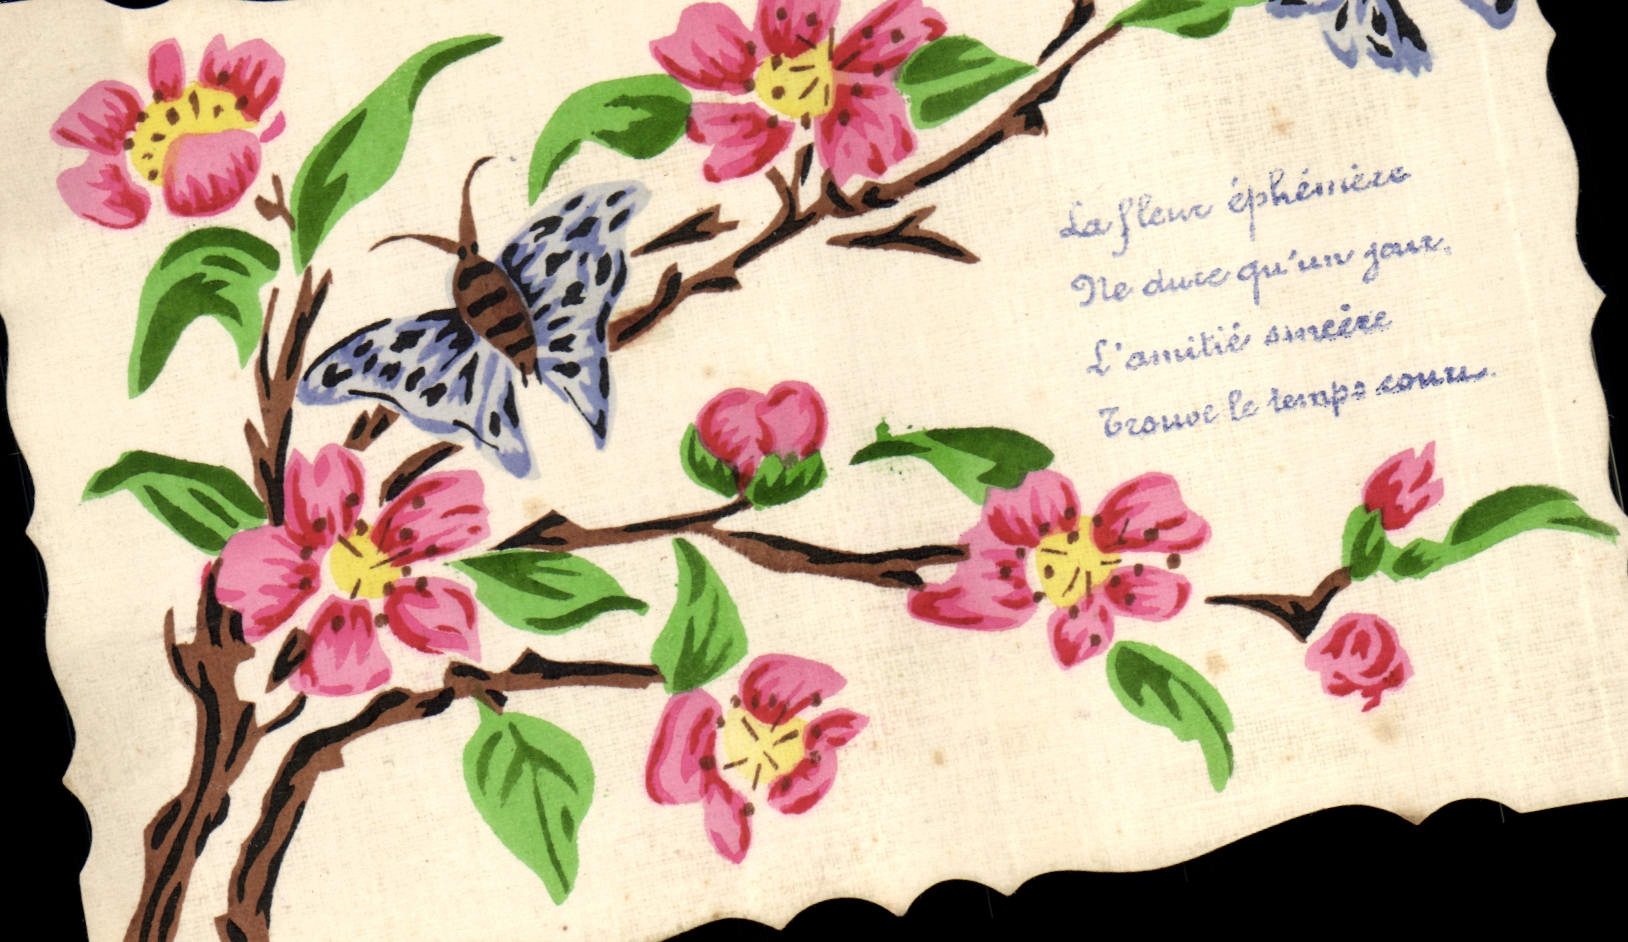 La fleur éphémère
Ne dure qu'un jour.
L'amitié sincère
Trouve le temps court.